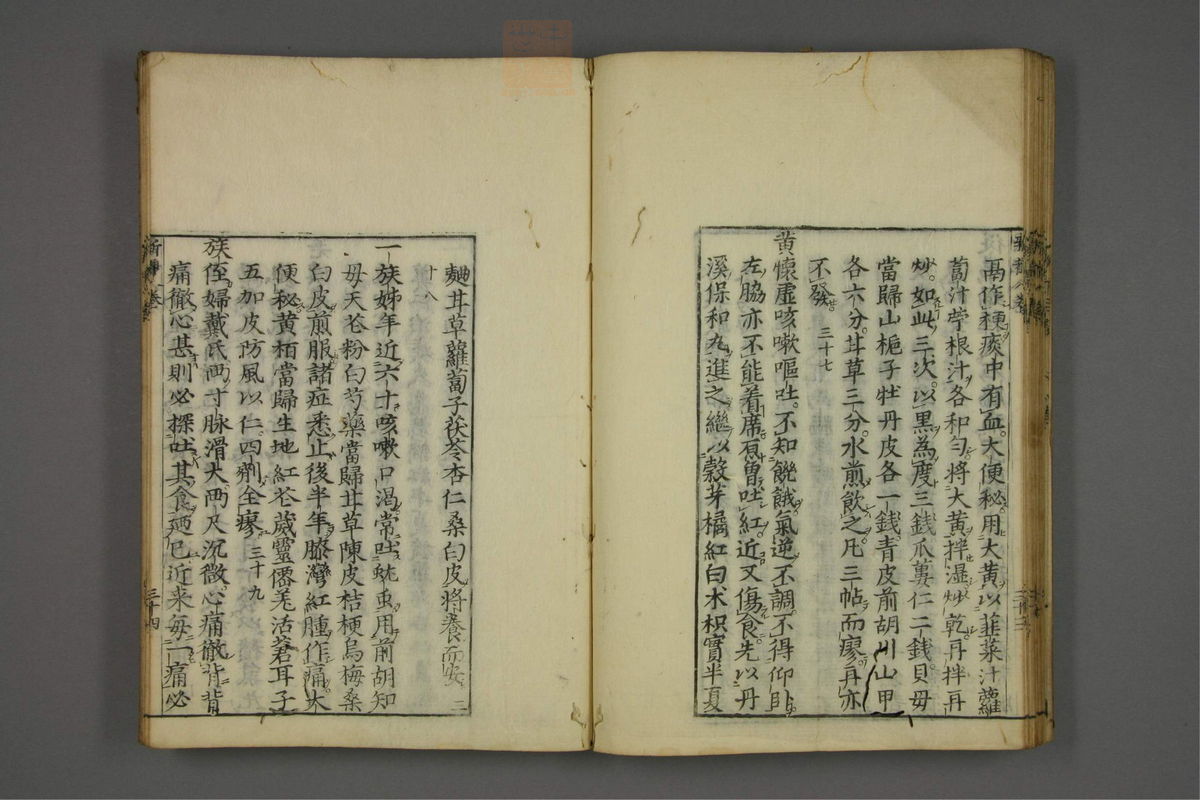 鬲作梗痰中有血大便秘用大黄以韮菜汁蘿
蔔汁苧根汁各和匀将大黄拌湿炒乾再拌再
炒如此三次以黒為度三銭瓜蔞仁二銭貝母
當歸山梔子牡丹皮各一銭青皮前胡川山甲
各六分甘草三分水煎飲之凡三帖而廖再亦
不發 三十七
黄懐虚咳嗽嘔吐不知饑餓氣逆不調不得仰卧
左脇亦不能着席原曽吐紅近又傷食先以丹
溪保和丸進之継以穀芽橘紅白朮枳實半夏
麯甘草蘿蔔子茯苓杏仁桑白皮将養而安 三
十八
一族姊年近六十咳嗽口渇常吐蚘虫用前胡知
母天花粉白芍薬當歸甘草陳皮桔梗烏梅桑
白皮煎服諸症悉止後半年膝灣紅腫作痛大
便秘黄栢當歸生地紅花葳靈僊羌活蒼耳子
五加皮防風以仁四劑全瘳 三十九
族侄婦戴氏両寸脉滑大両尺沉微心痛徹背背
痛徹心甚則必探吐其食廼已近来毎一痛必
三十四